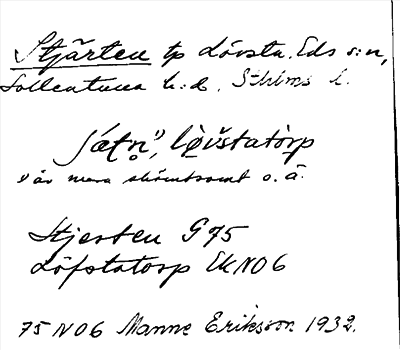 Stjärten tp Lövsta. Eds s:n,
Sollentuna h:d. Sthlms l.
lö̀vstatòrp
är mera skämtsamt o. ä.
Stjerten G 75
Löfstatorp EkNO6
75 NO6 Manne Eriksson 1932.